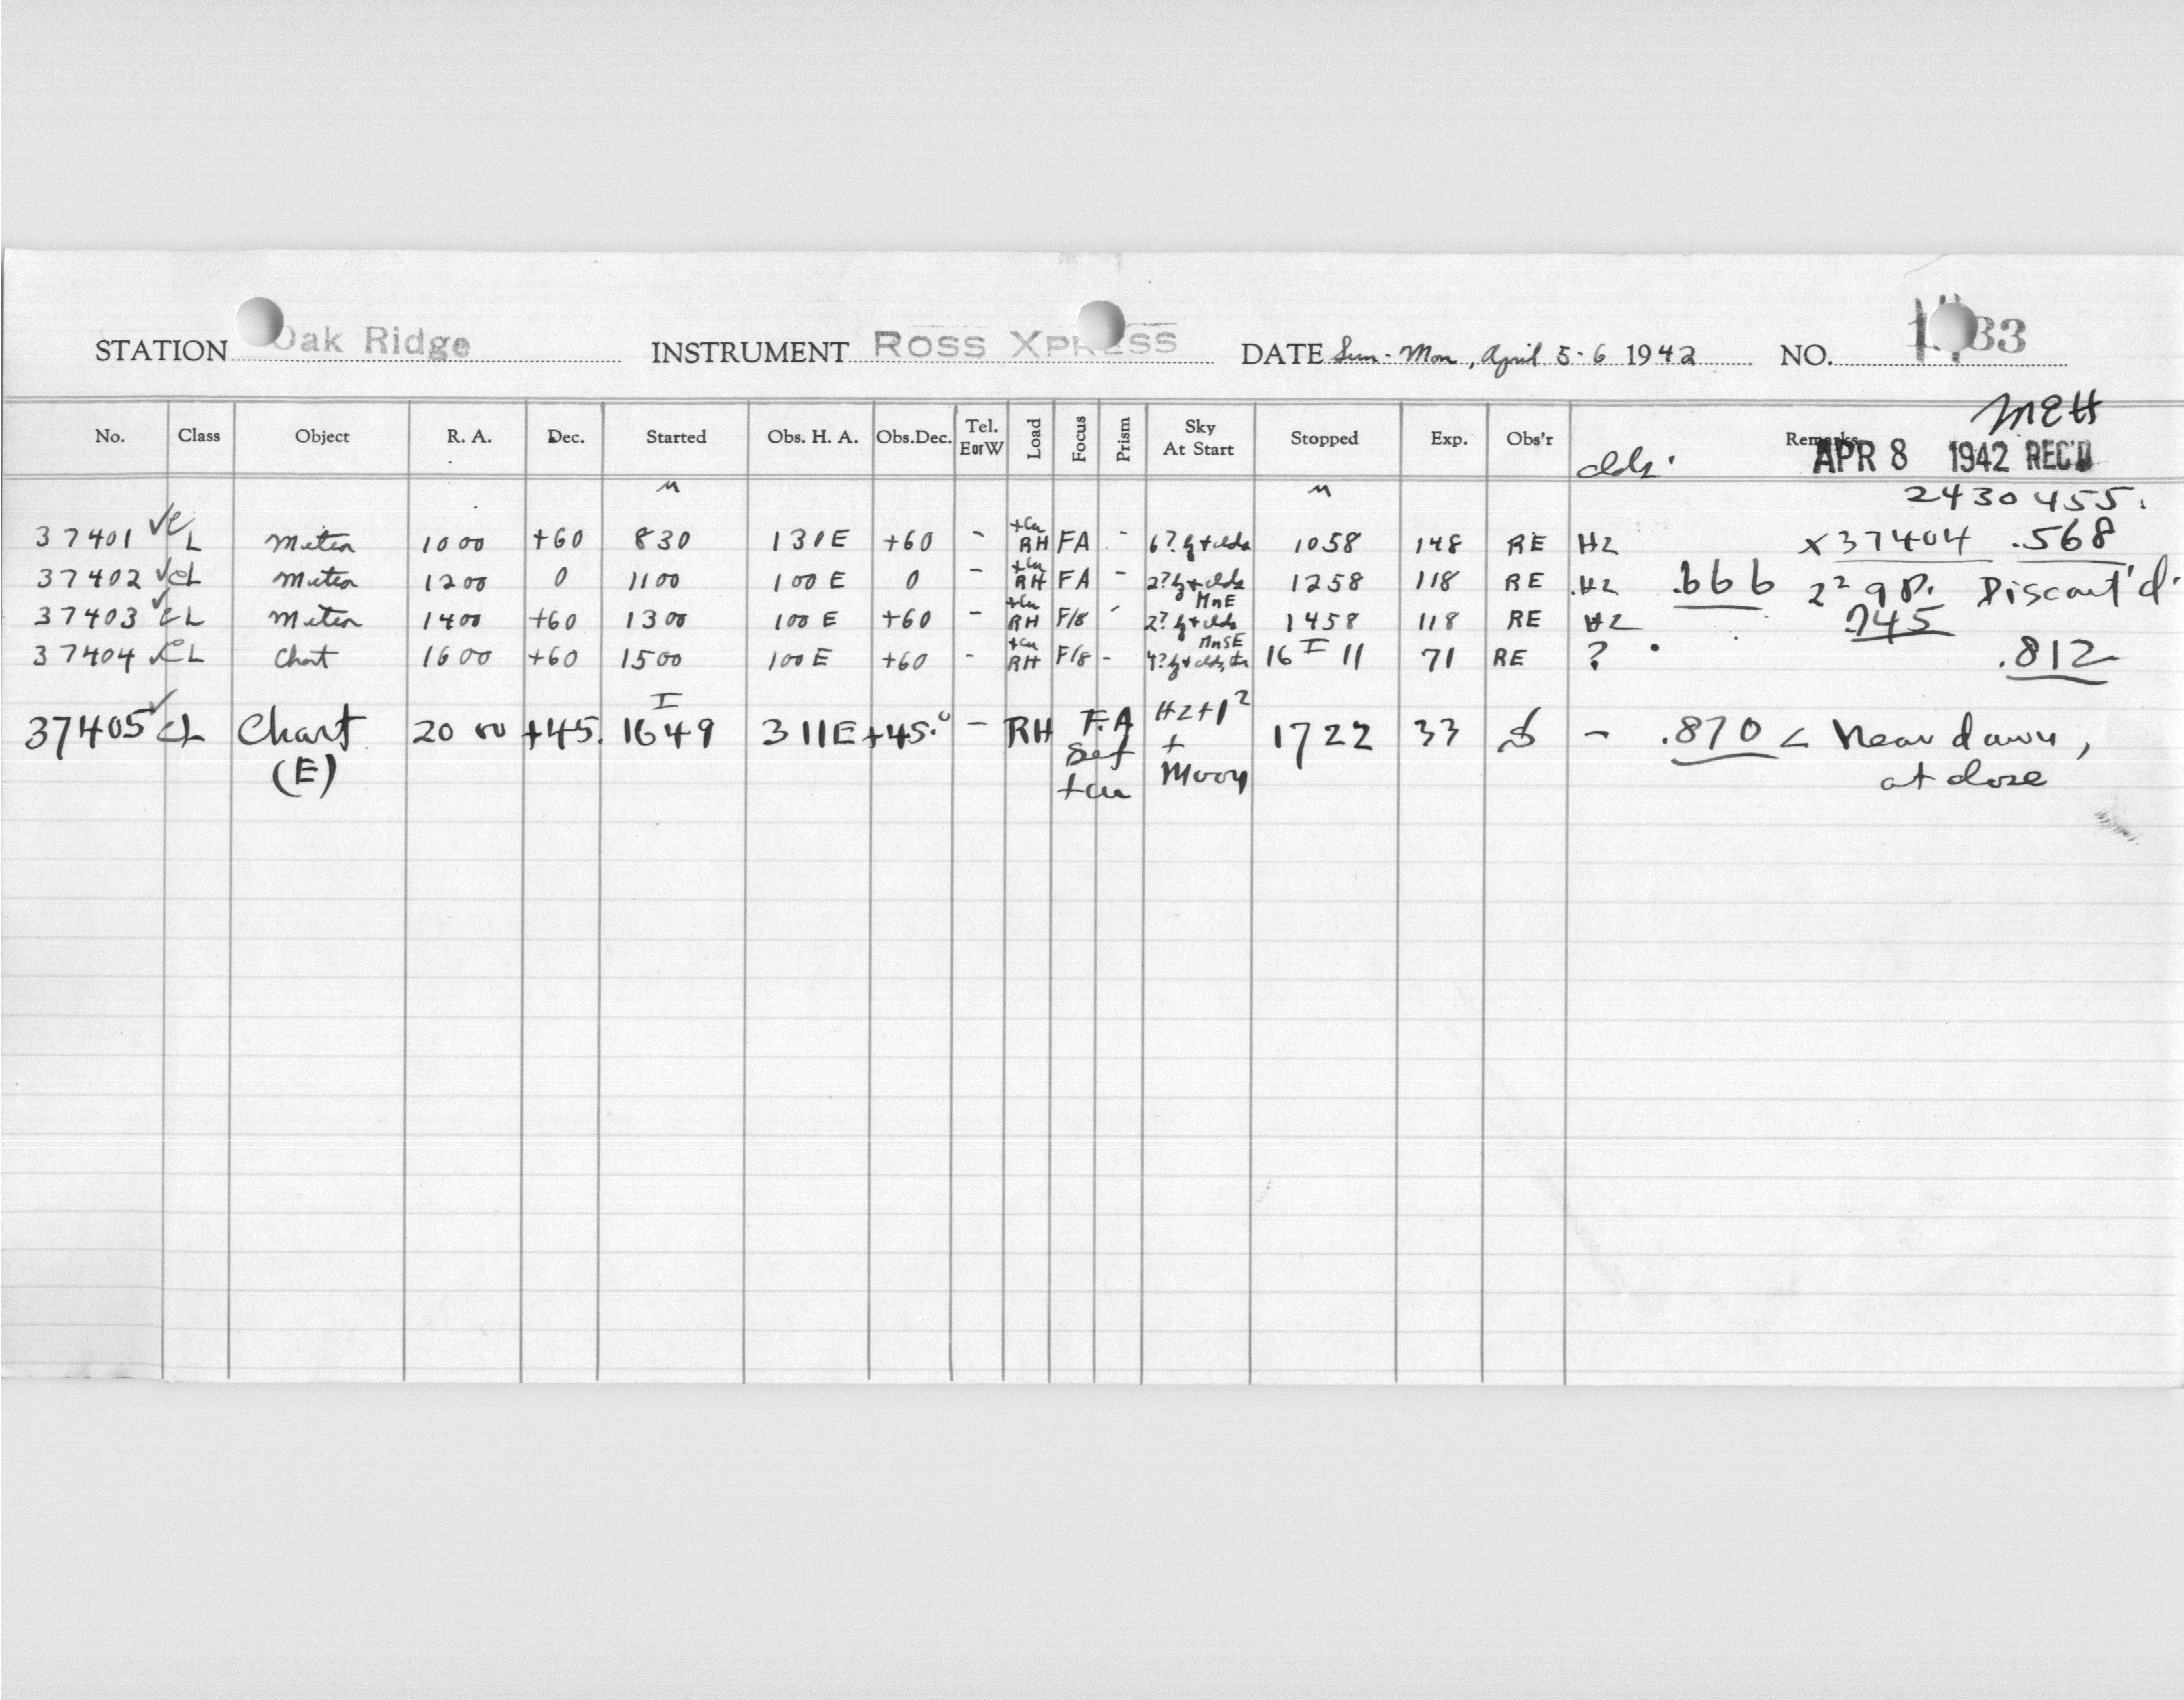 STATION Oak Ridge INSTRUMENT ROSS XPRESS DATE Sun - Mon, April 5-6 1942 NO. 33
MEH
No. Class Object R. A. Dec. Started Obs. H. A. Obs.Dec. Tel. EorW Load Focus Prism Sky At Start Stopped Exp. Obs'r Remarks
clds. APR 8 1942 REC'D
M M 2430455.
37401 ✓ CL Meteor 10 00 +60 8 30 1 30 E +60 - +Cu RH FA - 6? + clds 10 58 148 RE HZ x 37404 .568
37402 ✓ CL Meteor 12 00 0 11 00 1 00 E 0 - +Cu RH FA - 2? + clds 12 58 118 RE HZ .666 Discont'd.
37403 ✓ CL Meteor 14 00 +60 13 00 1 00 E +60 - +Cu RH F/8 - 2? + clds MnE 14 58 118 RE HZ .745
37404 ✓ CL Chart 16 00 +60 15 00 1 00 E +60 - +Cu RH F/8 - 4? + clds, MnSE 16 I 11 71 RE ? .812
I
37405 ✓ CL Chart 20 00 +45. 16 49 3 11 E +45.° - RH F.A Hz+1² 17 22 33 - .870 < Near dawn,
(E) Set + Moon at close